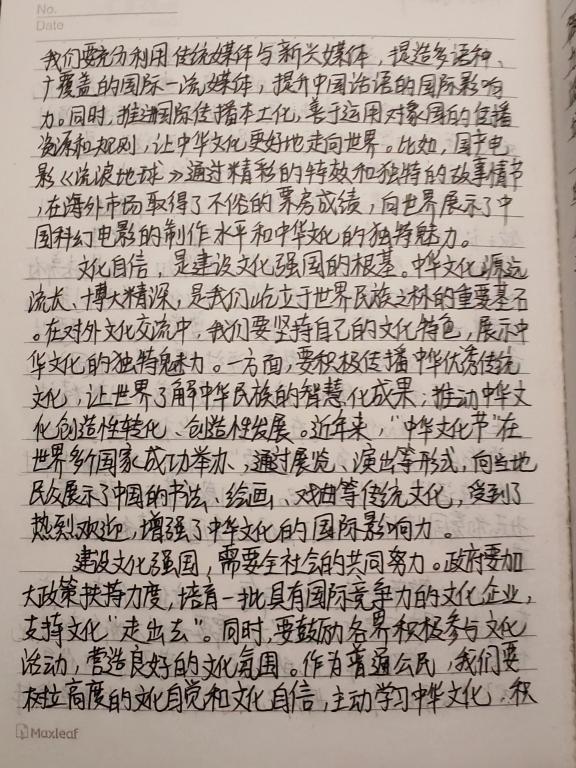 No.
Date
我们要充分利用传统媒体与新兴媒体，提造多语种、
广覆盖的国际一流媒体，提升中国话语的国际影响
力。同时，推进国际传播本土化，善于运用对象国的传播
资源和规则，让中华文化更好地走向世界。比如，国产电
影《流浪地球》通过精彩的特效和独特的故事情节
，在海外市场取得了不俗的票房成绩，向世界展示了中
国科幻电影的制作水平和中华文化的独特魅力。
文化自信，是建设文化强国的根基。中华文化源远
流长、博大精深，是我们屹立于世界民族之林的重要基石
。在对外文化交流中，我们要坚持自己的文化特色，展示中
华文化的独特魅力。一方面，要积极传播中华优秀传统
文化，让世界了解中华民族的智慧化成果；推动中华文
化创造性转化、创造性发展。近年来，“中华文化节”在
世界多个国家成功举办，通过展览、演出等形式，向当地
民众展示了中国的书法、绘画、戏曲等传统文化，受到了
热烈欢迎，增强了中华文化的国际影响力。
建设文化强国，需要全社会的共同努力。政府要加
大政策扶持力度，培育一批具有国际竞争力的文化企业，
支持文化“走出去”。同时，要鼓励各界积极参与文化
活动，营造良好的文化氛围。作为普通公民，我们要
树立高度的文化自觉和文化自信，主动学习中华文化，积
Maxleaf